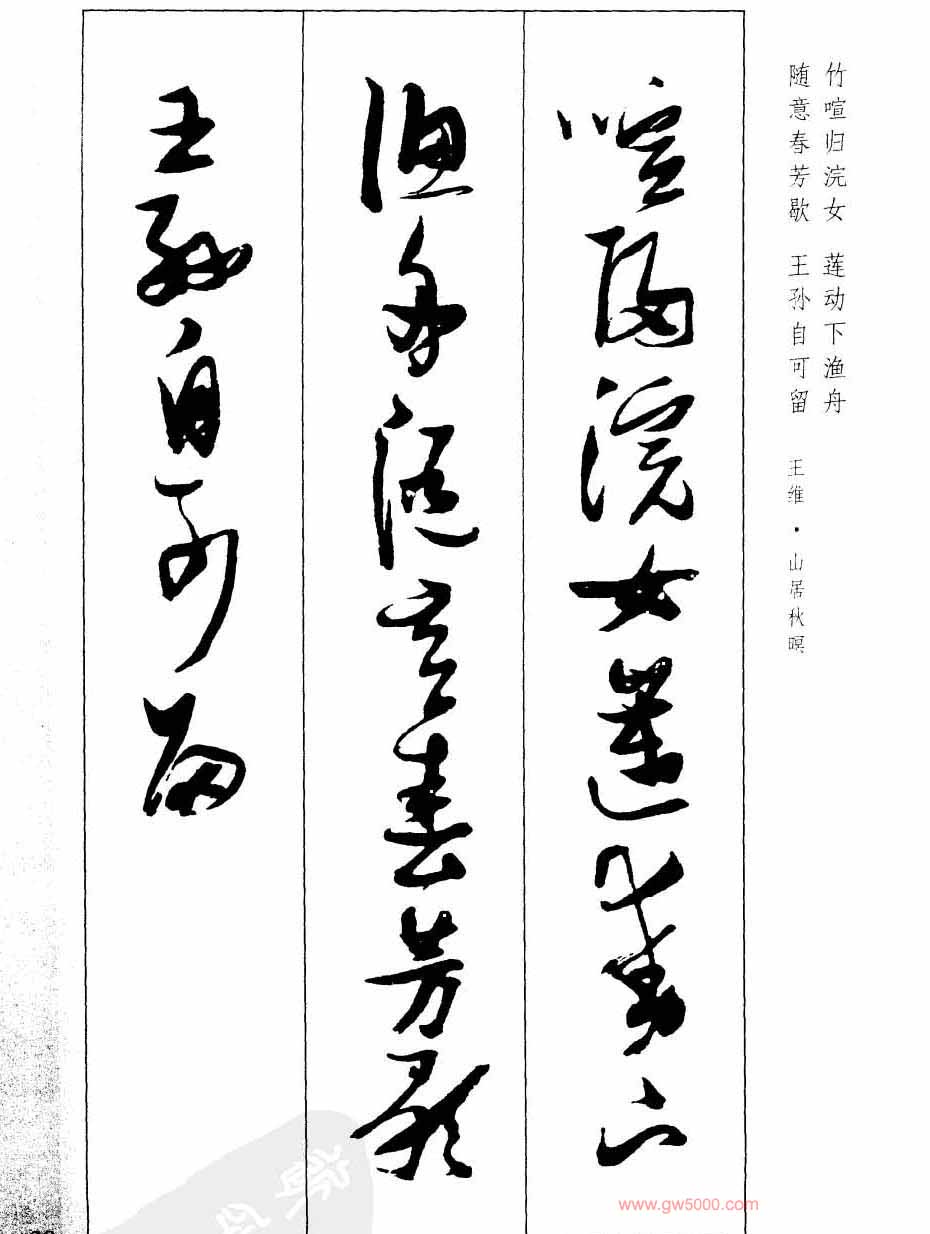 竹喧归浣女 莲动下渔舟
随意春芳歇 王孙自可留
王维·山居秋暝
喧歸浣女蓮動下
漁舟隨意春芳歇
王孫自可留
www.gw5000.com